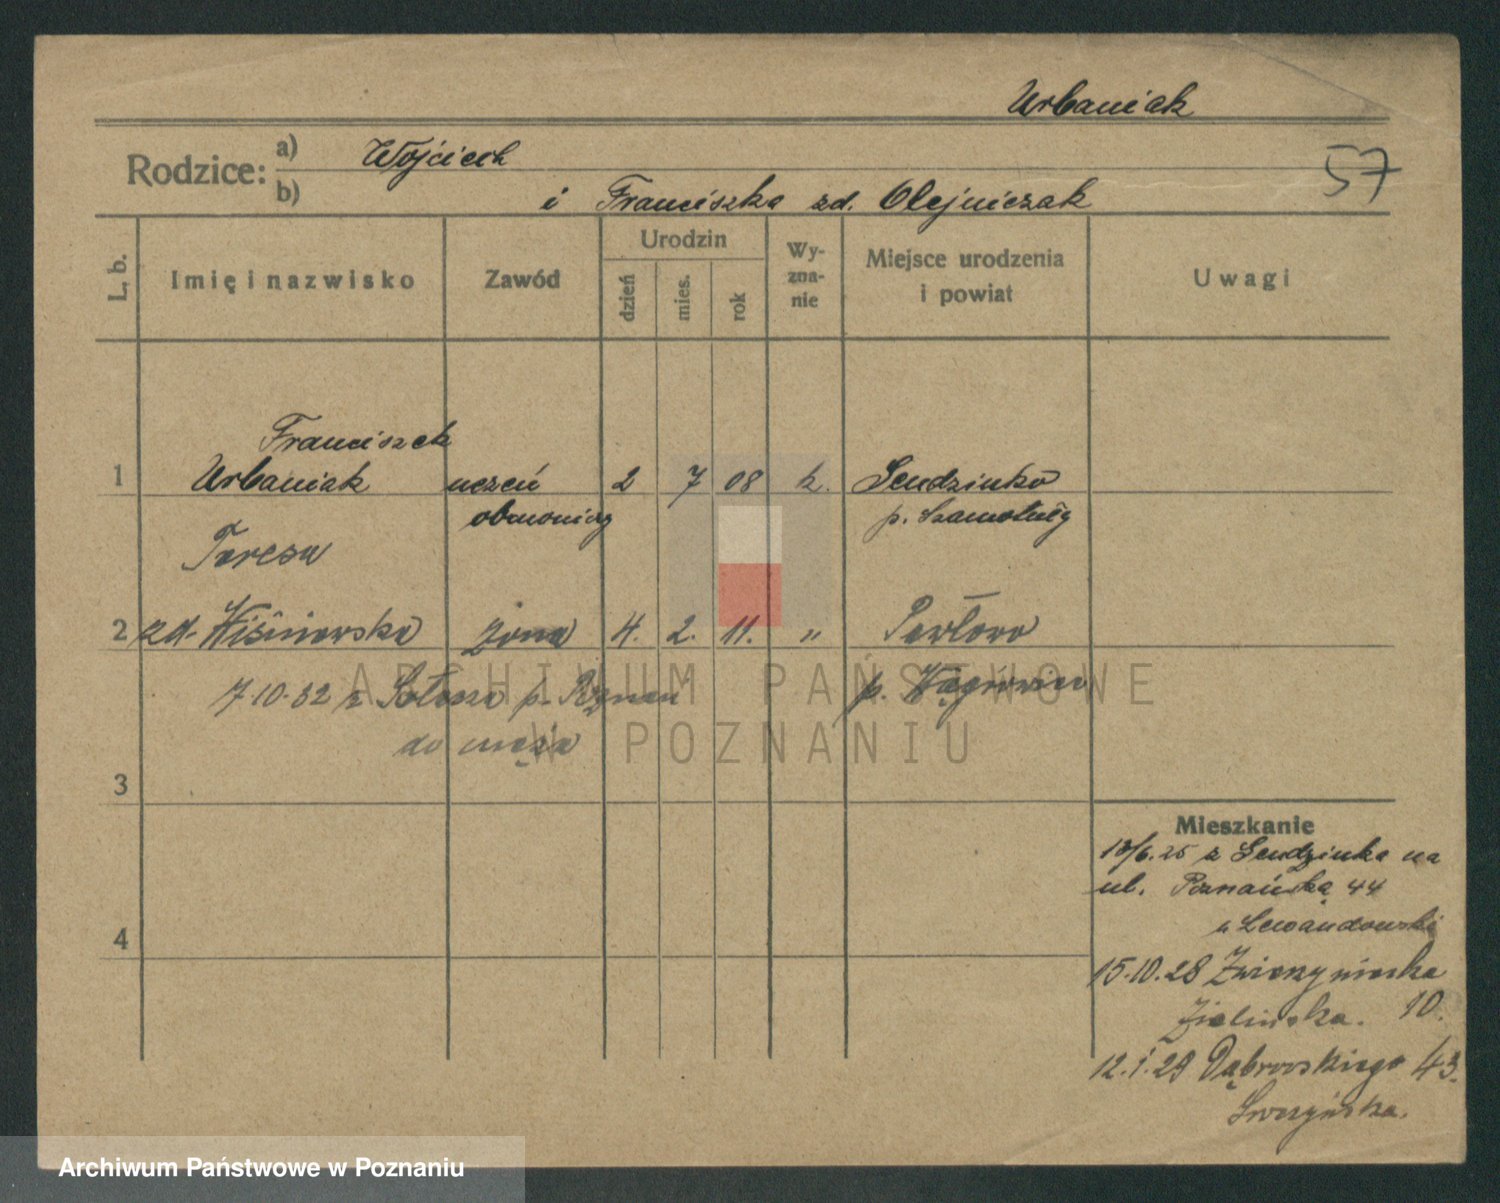 Urbaniak
Rodzice: a) Wojciech
57
b) i Franciszka zd. Olejniczak
L. b.
Imię i nazwisko
Zawód
Urodzin
dzień
mies.
rok
Wy-
zna-
nie
Miejsce urodzenia
i powiat
Uwagi
Franciszek
1 Urbaniak uczeń 2 7 08 k. Sendzinko
p. Szamotuły
Teresa
2 zd. Wiśniewska żona 4. 2. 11. " Pawłowo
7.10.32 z p. Poznań p. Wągrowiec
do męża
3
4
Mieszkanie
13/6.25 z Sendzinka na
ul. Poznańska 44
u Lewandowski
15.10.28 Zwierzyniecka
Zielińska. 10.
12.1.29 Dąbrowskiego 43.
ARCHIWUM PAŃSTWOWE
W POZNANIU
Archiwum Państwowe w Poznaniu